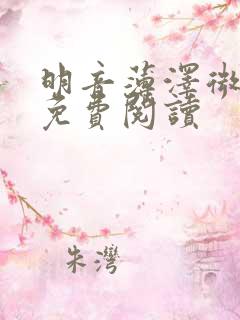 明音薄澤微
免費閱讀
朱灣